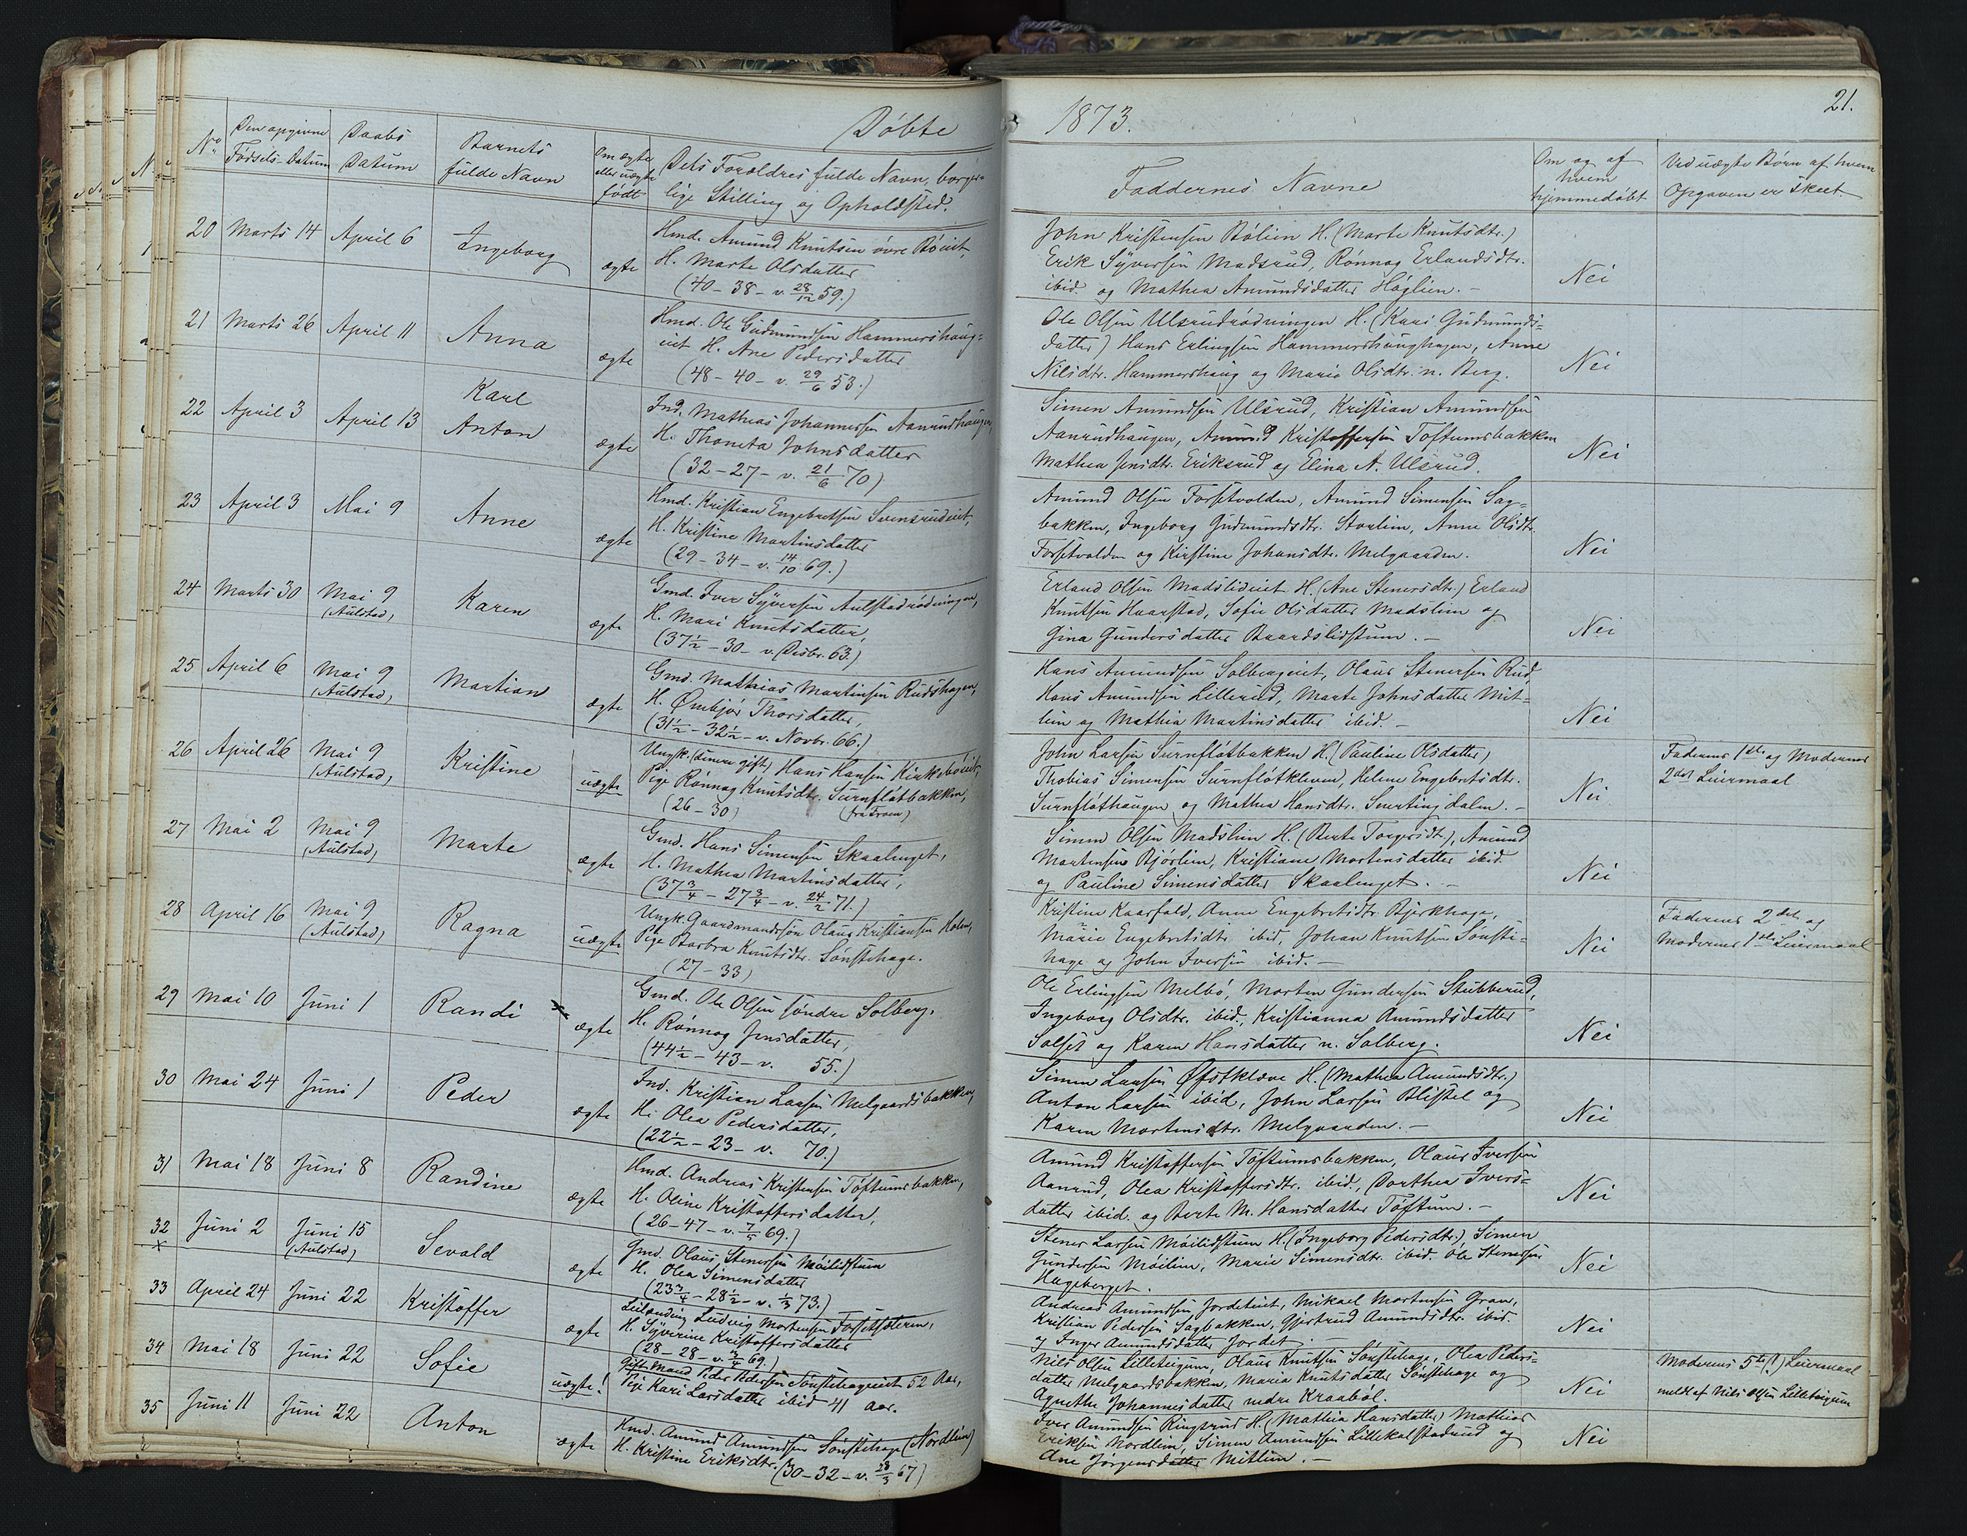 Døbte
No
Den opgivne
Fødsels-Datum
Daabs
Datum
Barnets
fulde Navn
Om ægte
eller uægte
født
Dets Forældres fulde Navn, borger-
lige Stilling og Opholdssted.
20 Marts 14 April 6 Ingeborg ægte
Hmd. Amund Knutsen øvre Bøeiet,
H. Marte Olsdatter
(40 - 38 - v. 28/12 59.)
21 Marts 26 April 11 Anna ægte
Hmd. Ole Gudmundsen Hammershaug-
eiet H. Ane Pedersdatter
(48 - 40 - v. 29/6 53.)
22 April 3 April 13 Karl
Anton ægte
Ind. Mathias Johannessen Aanrudhaugen,
H. Thoneta Johnsdatter
(32 - 27 - v. 21/6 70)
23 April 3 Mai 9 Anne ægte
Hmd. Kristian Engebretsen Svensrudeiet,
H. Kristine Martinsdatter
(29 - 34 - v. 14/10 69.)
24 Marts 30 Mai 9
(Aulstad,) Karen ægte
Gmd. Iver Syversen Aulstadrødningen,
H. Mari Knutsdatter,
(37½ - 30 - v. Desbr. 63.)
25 April 6 Mai 9
(Aulstad,) Martian ægte
Gmd. Mathias Martinsen Rudshagen,
H. Ømbjør Thorsdatter,
(31½ - 32½ - v. Novbr. 66.)
26 April 26 Mai 9
(Aulstad,) Kristine uægte
Ungk. (senere gift) Hans Hansen Kirkebøeiet,
Pige Rønnog Knutsdtr. Surnfløtbakken,
(26 - 30) (fra Froen)
27 Mai 2 Mai 9
(Aulstad,) Marte ægte
Gmd. Hans Simensen Skaalenget,
H. Mathea Martinsdatter,
(37¾ - 27¾ - v. 24/2 71.)
28 April 16 Mai 9
(Aulstad,) Ragna uægte
Ungk. Gaardmandssøn Olaus Kristiansen Holen,
Pige Barbra Knutsdtr. Sønstehage.
(27 - 33)
29 Mai 10 Juni 1 Randi ægte
Gmd. Ole Olsen søndre Solberg,
H. Rønnog Jensdatter,
(44½ - 43 - v. 55.)
30 Mai 24 Juni 1 Peder ægte
Ind. Kristian Larsen Melgaardsbakken,
H. Olea Pedersdatter,
(22½ - 23 - v. 70.)
31 Mai 18 Juni 8 Randine ægte
Hmd. Andreas Kristensen Toftumsbakken,
H. Oline Kristoffersdatter,
(26 - 47 - v. 7/5 69.)
32 Juni 2 Juni 15
(Aulstad,) Sevald ægte
Gmd. Olaus Stenersen Møilidstuen
H. Olea Simensdatter
(23¾ - 28½ - v. 1/3 73.)
33 April 24 Juni 22 Kristoffer ægte
Leilænding Ludvig Mortensen Forsetsæteren,
H. Syverine Kristoffersdatter
(28 - 28 - v. 2/4 69.)
34 Mai 18 Juni 22 Sofie uægte!
Gift Mand Peder Pedersen Sønstehageeiet 52 Aar,
Pige Kari Larsdatter ibid 41 Aar.
35 Juni 11 Juni 22 Anton ægte
Hmd. Amund Amundsen Sønstehage (Nordlien)
H. Kristine Eriksdtr. (30 - 32 - v. 28/3 67)
1873.
21.
Faddernes Navne
Om og af
hvem
hjemmedøbt
Ved uægte Børn af hvem
Opgaven er skeet.
John Kristensen Bølien H. (Marte Knutsdtr.)
Erik Syversen Madsrud, Rønnog Erlandsdtr.
ibid og Mathea Amundsdatter Haglien. - Nei
Ole Olsen Ulsrudrødningen H. (Kari Gudmunds-
datter) Hans Erlingsen Hammershaughagen, Anne
Nilsdtr. Hammershaug og Marie Olsdtr. n. Berg. Nei
Simen Amundsen Ulsrud, Kristian Amundsen
Aanrudhaugen, Amund Kristoffersen Toftumsbakken
Mathea Jensdtr. Eriksrud og Elina A. Ulsrud. Nei
Amund Olsen Forsetvolden, Amund Simensen Sag-
bakken, Ingeborg Gudmundsdtr. Storlien, Anne Olsdtr.
Forsetvolden og Kirstine Johansdtr. Melgaarden. Nei
Erland Olsen Madslieneiet H. (Ane Stenersdtr.) Erland
Knutsen Haarstad, Sofie Olsdatter Madslein og
Gina Gundersdatter Baardslidstuen. - Nei
Hans Amundsen Solbergeiet, Olaus Stenersen Rud
Hans Amundsen Lillerud, Marte Johnsdatter Mit-
lien og Mathia Martinsdatter ibid. - Nei
John Larsen Surnfløtbakken H. (Pauline Olsdatter)
Thobias Simensen Surnfløtkleven, Helene Engebretsdtr.
Surnfløthaugen og Mathea Hansdtr. Svartingsdalen. - Nei
Faderens 1ste og Moderens
2det Leiermaal
Simen Olsen Madslien H. (Berte Torgersdtr.), Amund
Martensen Bjørlien, Kristiane Mortensdatter ibid
og Pauline Simensdatter Skaalenget. - Nei
Kristine Kaarfald, Anne Engebretsdtr. Bjerkhage,
Marie Engebretsdtr. ibid, Johan Knutsen Sønste-
hage og John Iversen ibid. - Nei
Faderens 2det og
Moderens 1ste Leiermaal
Ole Erlingsen Melbø, Morten Gundersen Stubberud,
Ingeborg Olsdtr. ibid., Kristianna Amundsdatter
Solset og Karen Hansdatter n. Solberg. Nei
Simen Larsen Øfstkleve H. (Mathea Amundsdtr.)
Anton Larsen ibid, John Larsen Blistel og
Karen Mortensdtr. Melgaarden. - Nei
Amund Kristoffersen Toftumsbakken, Olaus Iversen
Aanrud, Olea Kristoffersdtr. ibid., Dorthea Ivers-
datter ibid. og Berte M. Hansdatter Toftum. - Nei
Stener Larsen Møilidstuen H. (Ingeborg Pedersdtr.) Simen
Gundersen Møilien, Marie Simensdtr. ibid. Ole Stenersen
Hageberget. Nei
Andreas Amundsen Jordeteiet, Mikael Mortensen Gran,
Kristian Pedersen Sagbakken, Gjertrud Amundsdtr. ibid.
og Inger Amundsdatter Jordet. Nei
Nils Olsen Lilleteigum, Olaus Knutsen Sønstehage, Olea Peders-
datter Melgaardsbakken, Marie Knutsdatter Sønstehage og
Agnethe Johannesdatter nedre Kraabøl. Nei
Moderens 5te(!) Leiermaal
meldt af Nils Olsen Lilleteigum
Iver Amundsen Ringsrud H. (Mathea Hansdatter) Mathias
Eriksen Nordlien, Simen Amundsen Lillekalstadrud og
Ane Jørgensdatter Mitlien. - Nei